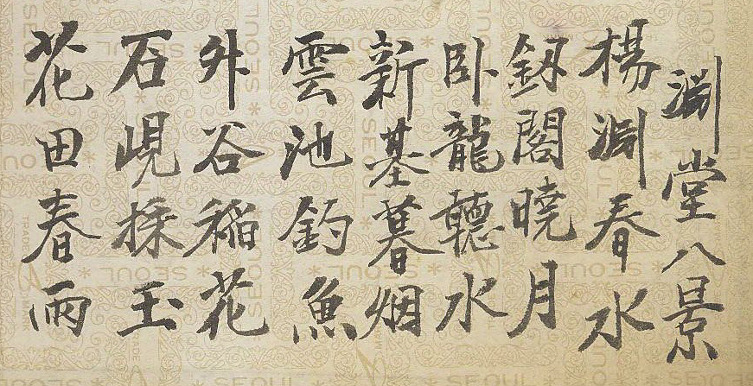 淵堂八景
楊淵春水
釼閣曉月
卧龍聽水
新基暮烟
雲池釣魚
外谷稲花
石峴採玉
花田春雨